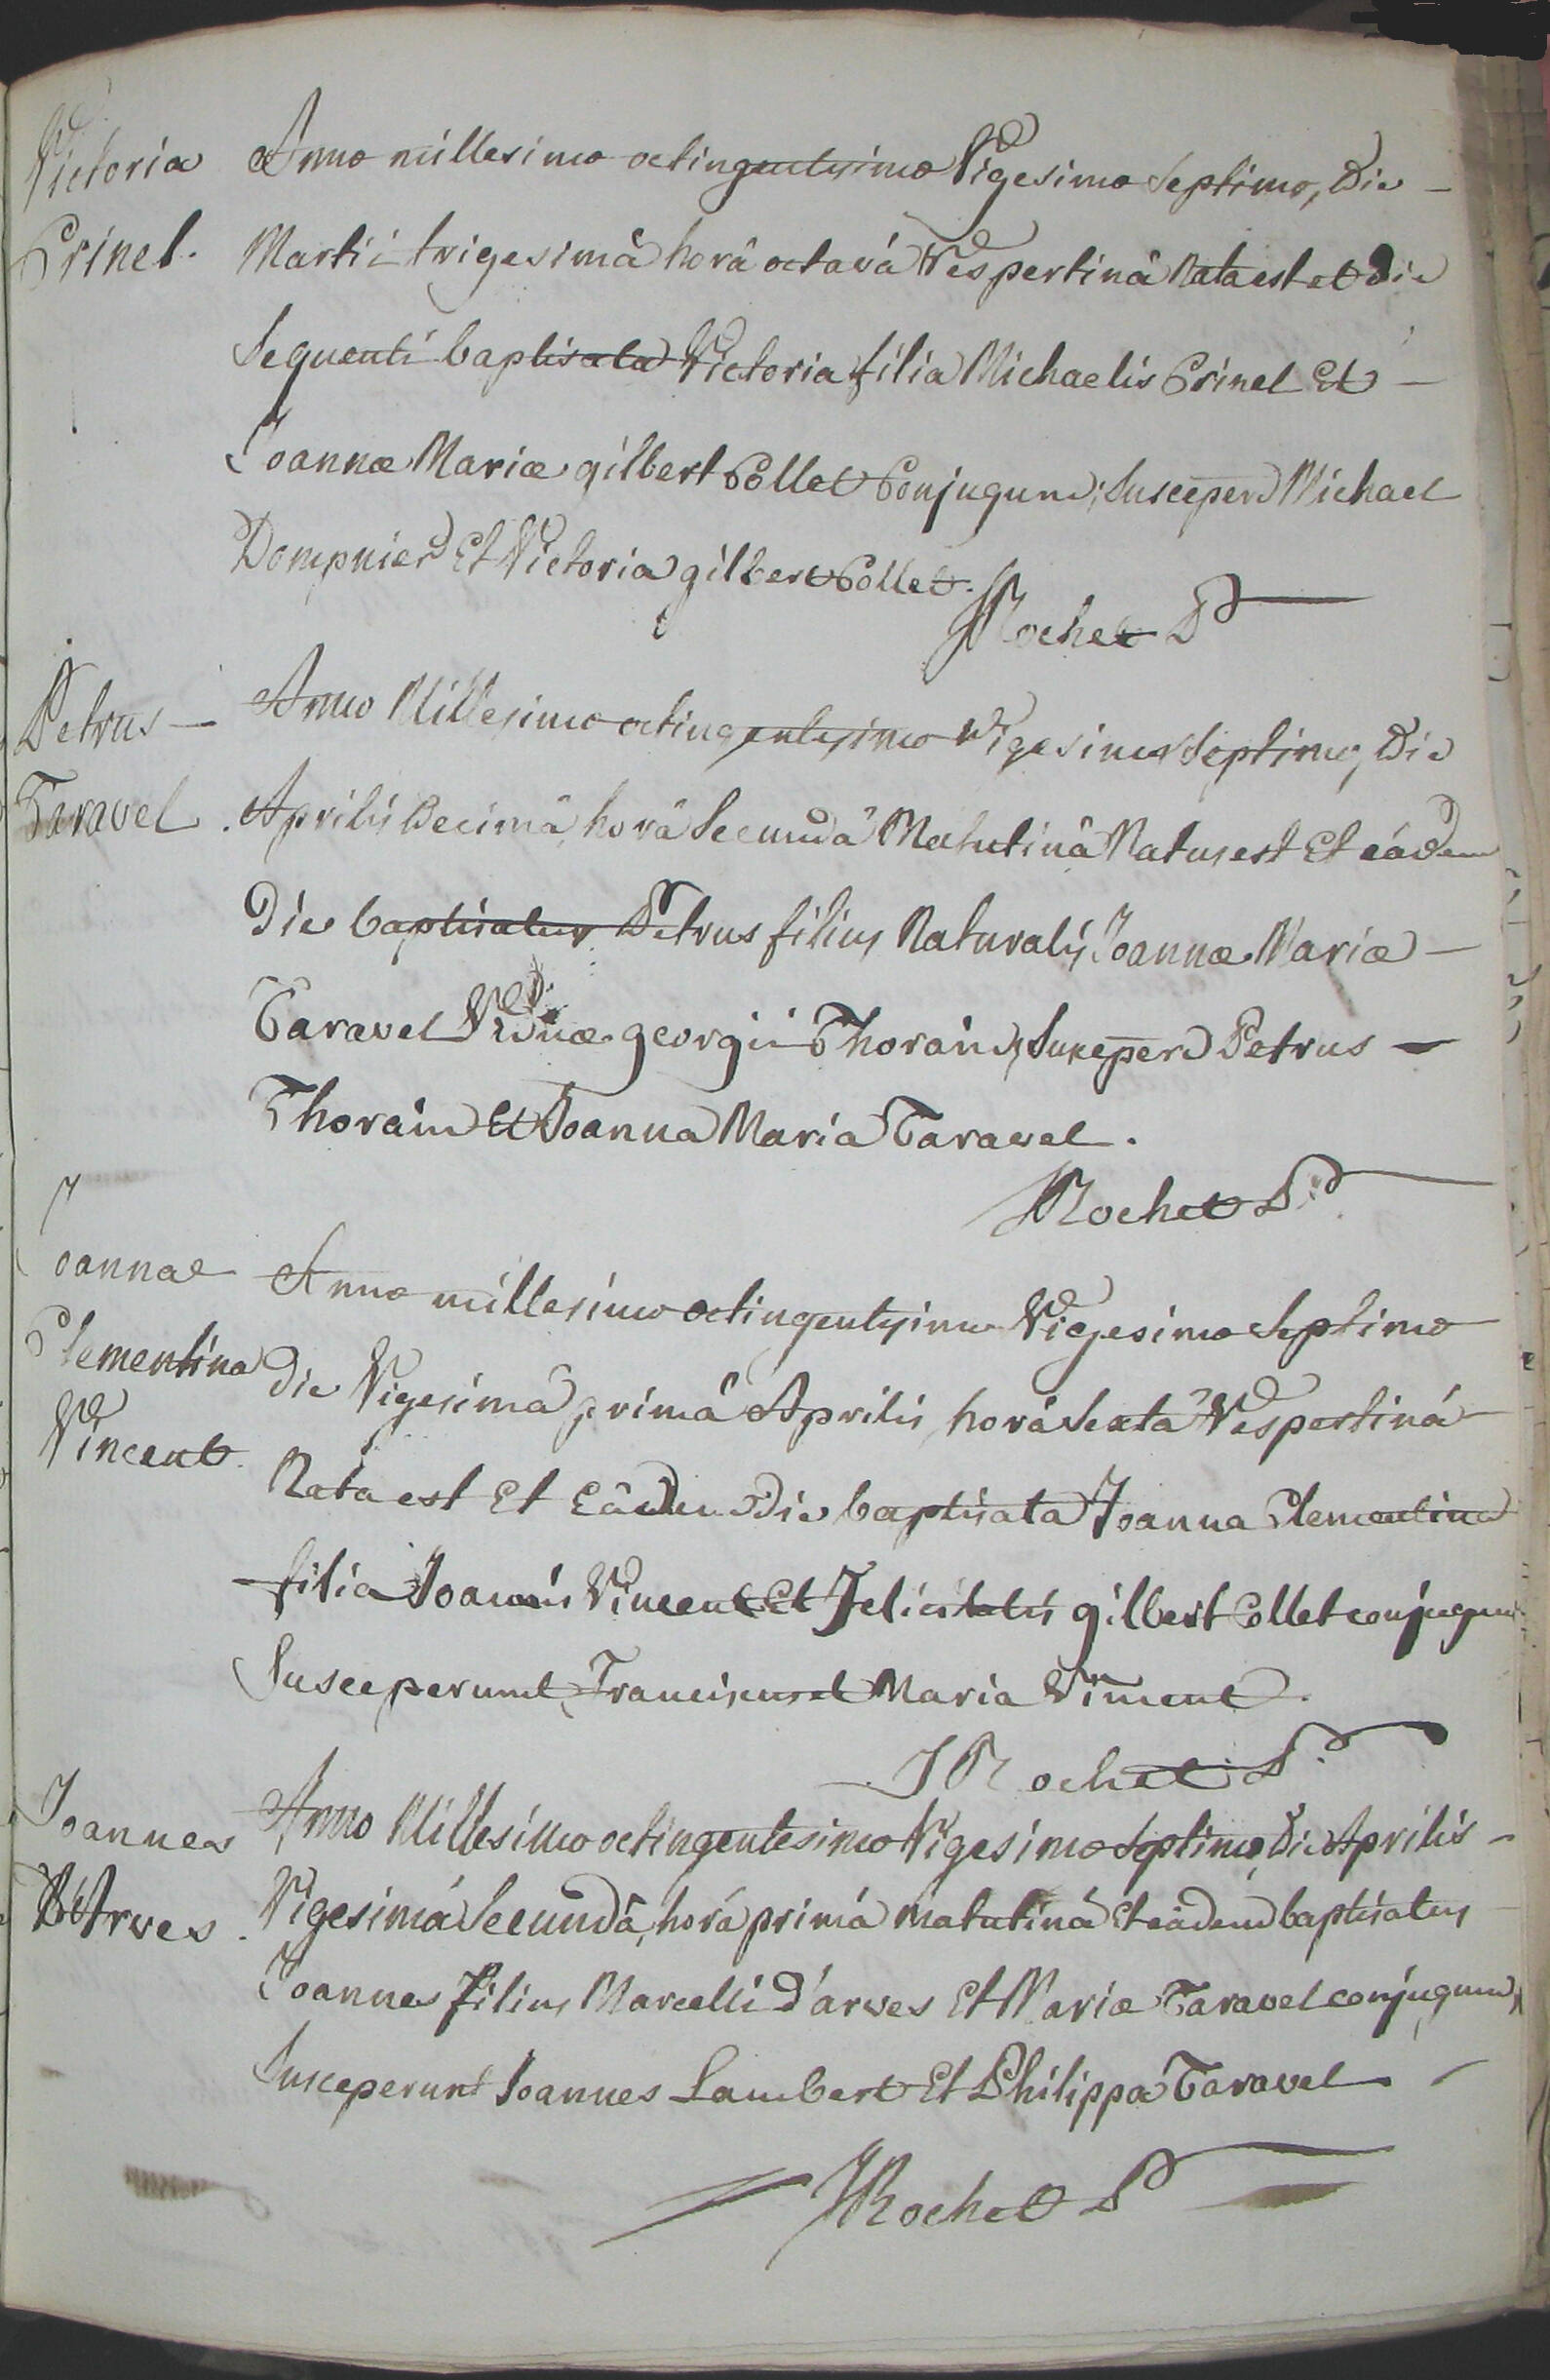 Victoria
Crinel.
Anno millesimo octingentesimo Vigesimo Septimo, Die
Martii trigesimâ horâ octavâ Vespertinâ Nata est et die
Sequenti baptisata Victoria filia Michaelis Crinel Et
Joannæ Mariæ gilbert Collet Conjugum; Susceper Michael
Dompnier Et Victoria gilbert Collet.
Rochet P
Petrus
Taravel.
Anno Millesimo octingentesimo Vigesimo Septimo, Die
Aprilis Decimâ, horâ Secundâ Matutinâ Natus est Et eâdem
Die baptisatus Petrus filius Naturalis Joannæ Mariæ
Taravel Viduæ georgii Thorain, Susceper Petrus
Thorain Et Joanna Maria Taravel.
Rochet P
Joannae
Clementina
Vincent.
Anno millesimo octingentesimo Vigesimo Septimo
die Vigesimâ primâ Aprilis, horâ Sextâ Vespertinâ
Nata est Et Eâdem Die baptisata Joanna Clementina
filia Joannis Vincent Et Felicitatis gilbert Collet conjugum
Susceperunt, Franciscus et Maria Vincent.
J Rochet P.
Joannes
D'Arves.
Anno Millesimo octingentesimo Vigesimo Septimo, Die Aprilis
Vigesimâ Secundâ, horâ primâ matutinâ Et eâdem baptisatus
Joannes filius Marcelli D'arves Et Mariæ Taravel conjugum,
Susceperunt Joannes Lambert Et Philippa Taravel
JRochet P